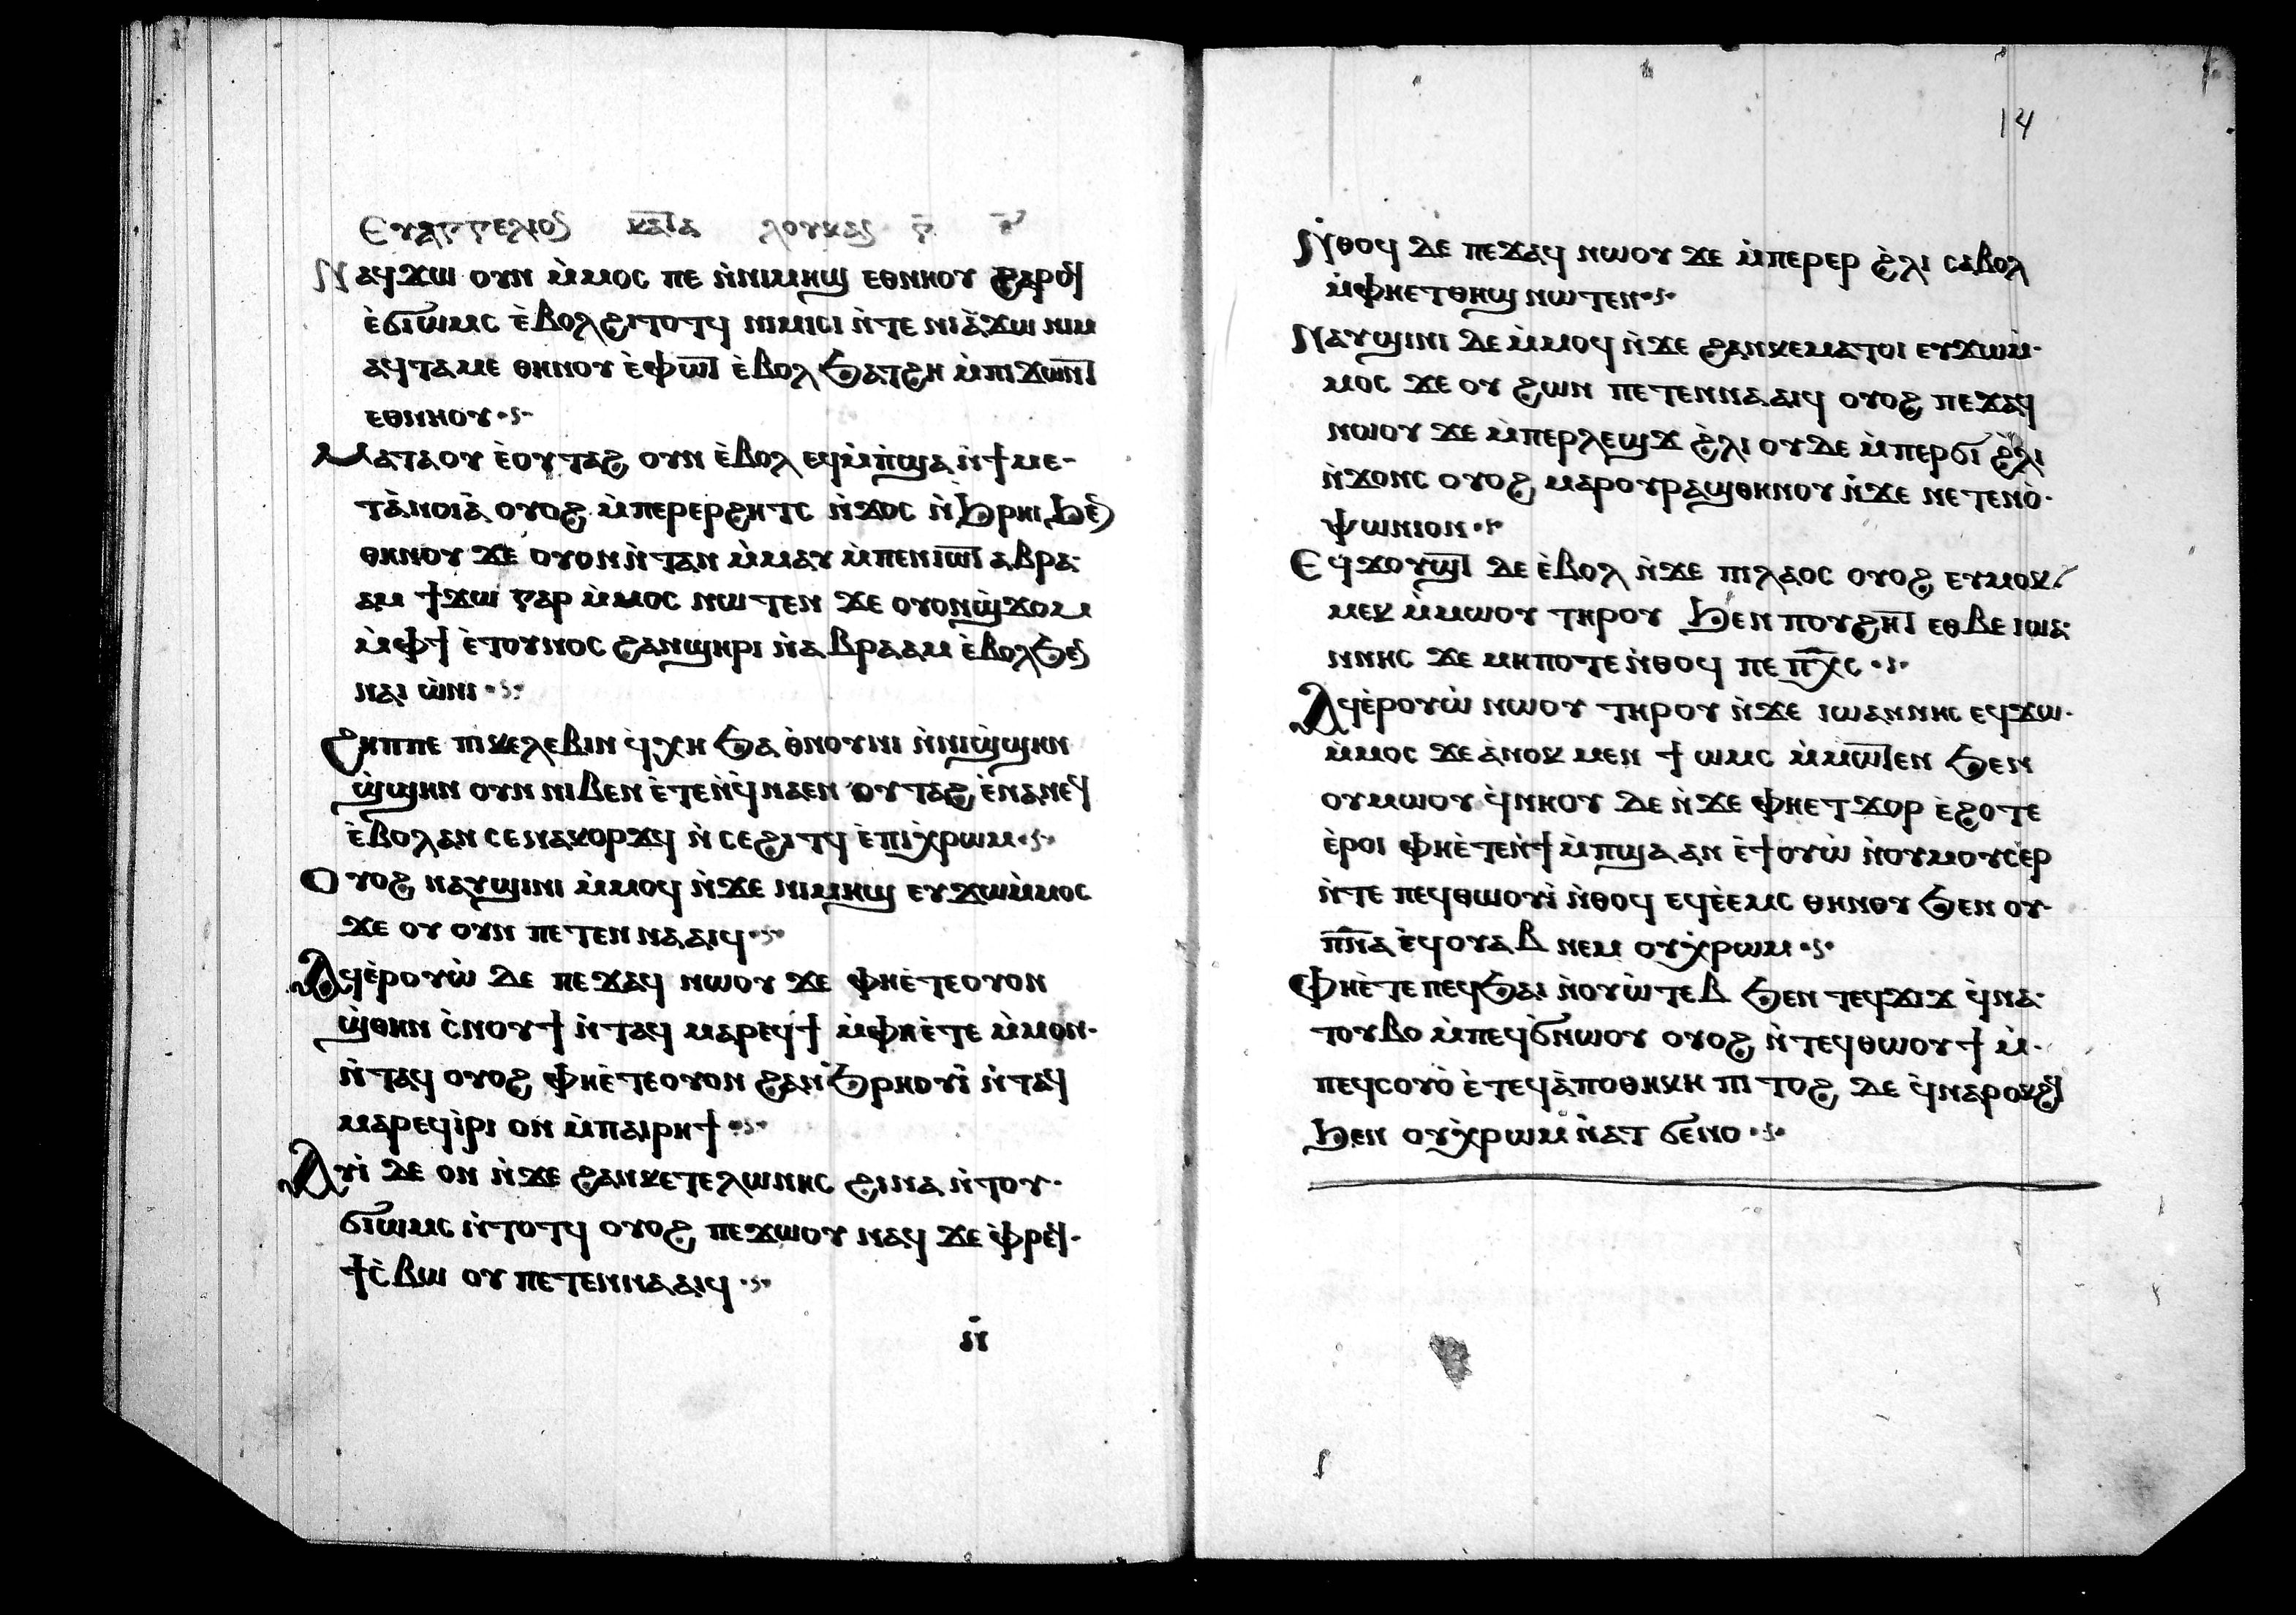 Ⲉⲩⲁⲅⲅⲉⲗⲓⲟⲥ ⲕⲁⲧⲁ ⲗⲟⲩⲕⲁⲥ ⲅ̄
Ⲛⲁϥϫⲱ ⲟⲩⲛ ⲙ̀ⲙⲟⲥ ⲡⲉ ⲛ̀ⲛⲓⲙⲏϣ ⲉⲑⲛⲏⲟⲩ ϩⲁⲣⲟϥ
ⲉ̀ϭⲓⲱⲙⲥ ⲉ̀ⲃⲟⲗϩⲓⲧⲟⲧϥ ⲛⲓⲙⲓⲥⲓ ⲛ̀ⲧⲉ ⲛⲓⲁ̀ϫⲱ ⲛⲓⲙ
ⲁϥⲧⲁⲙⲉ ⲑⲏⲛⲟⲩ ⲉ̀ⲫⲱⲧ ⲉ̀ⲃⲟⲗ ϧⲁⲧϩⲏ ⲙ̀ⲡⲓϫⲱⲛⲧ
ⲉⲑⲛⲏⲟⲩ
Ⲙⲁⲧⲁⲟⲩ ⲉ̀ⲟⲩⲧⲁϩ ⲟⲩⲛ ⲉ̀ⲃⲟⲗ ⲉϥⲙ̀ⲡ̀ϣⲁ ⲛ̀ϯⲙⲉ-
ⲧⲁ̀ⲛⲟⲓⲁ̀ ⲟⲩⲟϩ ⲙ̀ⲡⲉⲣⲉⲣϩⲏⲧⲥ ⲛ̀ϫⲟⲥ ⲛ̀ϧⲣⲏⲓ ϧⲉⲛ
ⲑⲏⲛⲟⲩ ϫⲉ ⲟⲩⲟⲛⲛ̀ⲧⲁⲛ ⲙ̀ⲙⲁⲩ ⲙ̀ⲡⲉⲛⲓⲱⲧ ⲁⲃⲣⲁ-
ⲁⲙ ϯϫⲱ ⲅⲁⲣ ⲙ̀ⲙⲟⲥ ⲛⲱⲧⲉⲛ ϫⲉ ⲟⲩⲟⲛϣ̀ϫⲟⲙ
ⲙ̀ⲫϯ ⲉ̀ⲧⲟⲩⲛⲟⲥ ϩⲁⲛϣⲏⲣⲓ ⲛ̀ⲁⲃⲣⲁⲁⲙ ⲉ̀ⲃⲟⲗϧⲉⲛ
ⲛⲁⲓ ⲱ̀ⲛⲓ
Ϩⲏⲡⲡⲉ ⲡⲓⲕⲉⲗⲉⲃⲓⲛ ϥ̀ⲭⲏ ϧⲁ ⲑ̀ⲛⲟⲩⲛⲓ ⲛ̀ⲛⲓϣ̀ϣⲏⲛ
ϣ̀ϣⲏⲛ ⲟⲩⲛ ⲛⲓⲃⲉⲛ ⲉ̀ⲧⲉⲛ̀ϥ̀ⲛⲁⲉⲛ ⲟⲩⲧⲁϩ ⲉ̀ⲛⲁⲛⲉϥ
ⲉ̀ⲃⲟⲗⲁⲛ ⲥⲉⲛⲁⲕⲟⲣϫϥ ⲛ̀ⲥⲉϩⲓⲧϥ ⲉ̀ⲡⲓⲭ̀ⲣⲱⲙ
Ⲟⲩⲟϩ ⲛⲁⲩϣⲓⲛⲓ ⲙ̀ⲙⲟϥ ⲛ̀ϫⲉ ⲛⲓⲙⲏϣ ⲉⲩϫⲱⲙ̀ⲙⲟⲥ
ϫⲉ ⲟⲩ ⲟⲩⲛ ⲡⲉⲧⲉⲛⲛⲁⲁⲓϥ
Ⲁϥⲉ̀ⲣⲟⲩⲱ̀ ⲇⲉ ⲡⲉϫⲁϥ ⲛⲱⲟⲩ ϫⲉ ⲫⲏⲉ̀ⲧⲉⲟⲩⲟⲛ
ϣ̀ⲑⲏⲛ ⲥ̀ⲛⲟⲩϯ ⲛ̀ⲧⲁϥ ⲙⲁⲣⲉϥϯ ⲙ̀ⲫⲏⲉ̀ⲧⲉ ⲙ̀ⲙⲟⲛ-
ⲛ̀ⲧⲁϥ ⲟⲩⲟϩ ⲫⲏⲉ̀ⲧⲉⲟⲩⲟⲛ ϩⲁⲛϧ̀ⲣⲏⲟⲩⲓ̀ ⲛ̀ⲧⲁϥ
ⲙⲁⲣⲉϥⲓ̀ⲣⲓ ⲟⲛ ⲙ̀ⲡⲁⲓⲣⲏϯ
Ⲁⲩⲓ̀ ⲇⲉ ⲟⲛ ⲛ̀ϫⲉ ϩⲁⲛⲕⲉⲧⲉⲗⲱⲛⲏⲥ ϩⲓⲛⲁ ⲛ̀ⲧⲟⲩ-
ϭⲓⲱⲙⲥ ⲛ̀ⲧⲟⲧϥ ⲟⲩⲟϩ ⲡⲉϫⲱⲟⲩ ⲛⲁϥ ϫⲉ ⲫ̀ⲣⲉϥ-
ϯⲥ̀ⲃⲱ ⲟⲩ ⲡⲉⲧⲉⲛⲛⲁⲁⲓϥ
ⲛ̄
14
Ⲛ̀ⲑⲟϥ ⲇⲉ ⲡⲉϫⲁϥ ⲛⲱⲟⲩ ϫⲉ ⲙ̀ⲡⲉⲣⲉⲣ ϩ̀ⲗⲓ ⲥⲁⲃⲟⲗ
ⲙ̀ⲫⲏⲉⲧⲑⲏϣ ⲛⲱⲧⲉⲛ
Ⲛⲁⲩϣⲓⲛⲓ ⲇⲉ ⲙ̀ⲙⲟϥ ⲛ̀ϫⲉ ϩⲁⲛⲕⲉⲙⲁⲧⲟⲓ ⲉⲩϫⲱⲙ̀-
ⲙⲟⲥ ϫⲉ ⲟⲩ ϩⲱⲛ ⲡⲉⲧⲉⲛⲛⲁⲁⲓϥ ⲟⲩⲟϩ ⲡⲉϫⲁϥ
ⲛⲱⲟⲩ ϫⲉ ⲙ̀ⲡⲉⲣⲗⲉϣϫ ϩ̀ⲗⲓ ⲟⲩⲇⲉ ⲙ̀ⲡⲉⲣϭⲓ ϩ̀ⲗⲓ
ⲛ̀ϫⲟⲛⲥ ⲟⲩⲟϩ ⲙⲁⲣⲟⲩⲣⲁϣⲑⲏⲛⲟⲩ ⲛ̀ϫⲉ ⲛⲉⲧⲉⲛⲟ̀-
ⲯⲱⲛⲓⲟⲛ
Ⲉϥϫⲟⲩϣⲧ ⲇⲉ ⲉ̀ⲃⲟⲗ ⲛ̀ϫⲉ ⲡⲓⲗⲁⲟⲥ ⲟⲩⲟϩ ⲉⲩⲙⲟⲕ-
ⲙⲉⲕ ⲙ̀ⲙⲱⲟⲩ ⲧⲏⲣⲟⲩ ϧⲉⲛ ⲡⲟⲩϩⲏⲧ ⲉⲑⲃⲉ ⲓⲱⲁ-
ⲛⲛⲏⲥ ϫⲉ ⲙⲏⲡⲟⲧⲉ ⲛ̀ⲑⲟϥ ⲡⲉ ⲡⲭ̅ⲥ
Ⲁϥⲉ̀ⲣⲟⲩⲱ̀ ⲛⲱⲟⲩ ⲧⲏⲣⲟⲩ ⲛ̀ϫⲉ ⲓⲱⲁⲛⲛⲏⲥ ⲉϥϫⲱ-
ⲙ̀ⲙⲟⲥ ϫⲉ ⲁ̀ⲛⲟⲕ ⲙⲉⲛ ϯ ⲱⲙⲥ ⲙ̀ⲙⲱⲧⲉⲛ ϧⲉⲛ
ⲟⲩⲙⲱⲟⲩ ϥ̀ⲛⲏⲟⲩ ⲇⲉ ⲛ̀ϫⲉ ⲫⲏⲉⲧϫⲟⲣ ⲉ̀ϩⲟⲧⲉ
ⲉ̀ⲣⲟⲓ ⲫⲏⲉ̀ⲧⲉⲛ̀ϯⲙ̀ⲡϣⲁ ⲁⲛ ⲉ̀ϯⲟⲩⲱ̀ ⲛ̀ⲟⲩⲙⲟⲩⲥⲉⲣ
ⲛ̀ⲧⲉ ⲡⲉϥⲑⲱⲟⲩⲓ̀ ⲛ̀ⲑⲟϥ ⲉϥⲉ̀ⲉⲙⲥ ⲑⲏⲛⲟⲩ ϧⲉⲛ ⲟⲩ-
ⲡ̅ⲛ̅ⲁ ⲉ̀ϥⲟⲩⲁⲃ ⲛⲉⲙ ⲟⲩⲭ̀ⲣⲱⲙ
Ⲫⲏⲉ̀ⲧⲉ ⲡⲉϥϧⲁⲓ ⲛ̀ⲟⲩⲱ̀ⲧⲉⲃ ϧⲉⲛ ⲧⲉϥϫⲓϫ ϥ̀ⲛⲁ-
ⲧⲟⲩⲃⲟ ⲙ̀ⲡⲉϥϭ̀ⲛⲱⲟⲩ ⲟⲩⲟϩ ⲛ̀ⲧⲉϥⲑⲱⲟⲩϯ ⲙ̀-
ⲡⲉϥⲥⲟⲩⲟ̀ ⲉ̀ⲧⲉϥⲁ̀ⲡⲟⲑⲏⲕⲏ ⲡⲓⲧⲟϩ ⲇⲉ ϥ̀ⲛⲁⲣⲟⲕϩϥ
ϧⲉⲛ ⲟⲩⲭ̀ⲣⲱⲙ ⲛ̀ⲁⲧϭⲉⲛⲟ